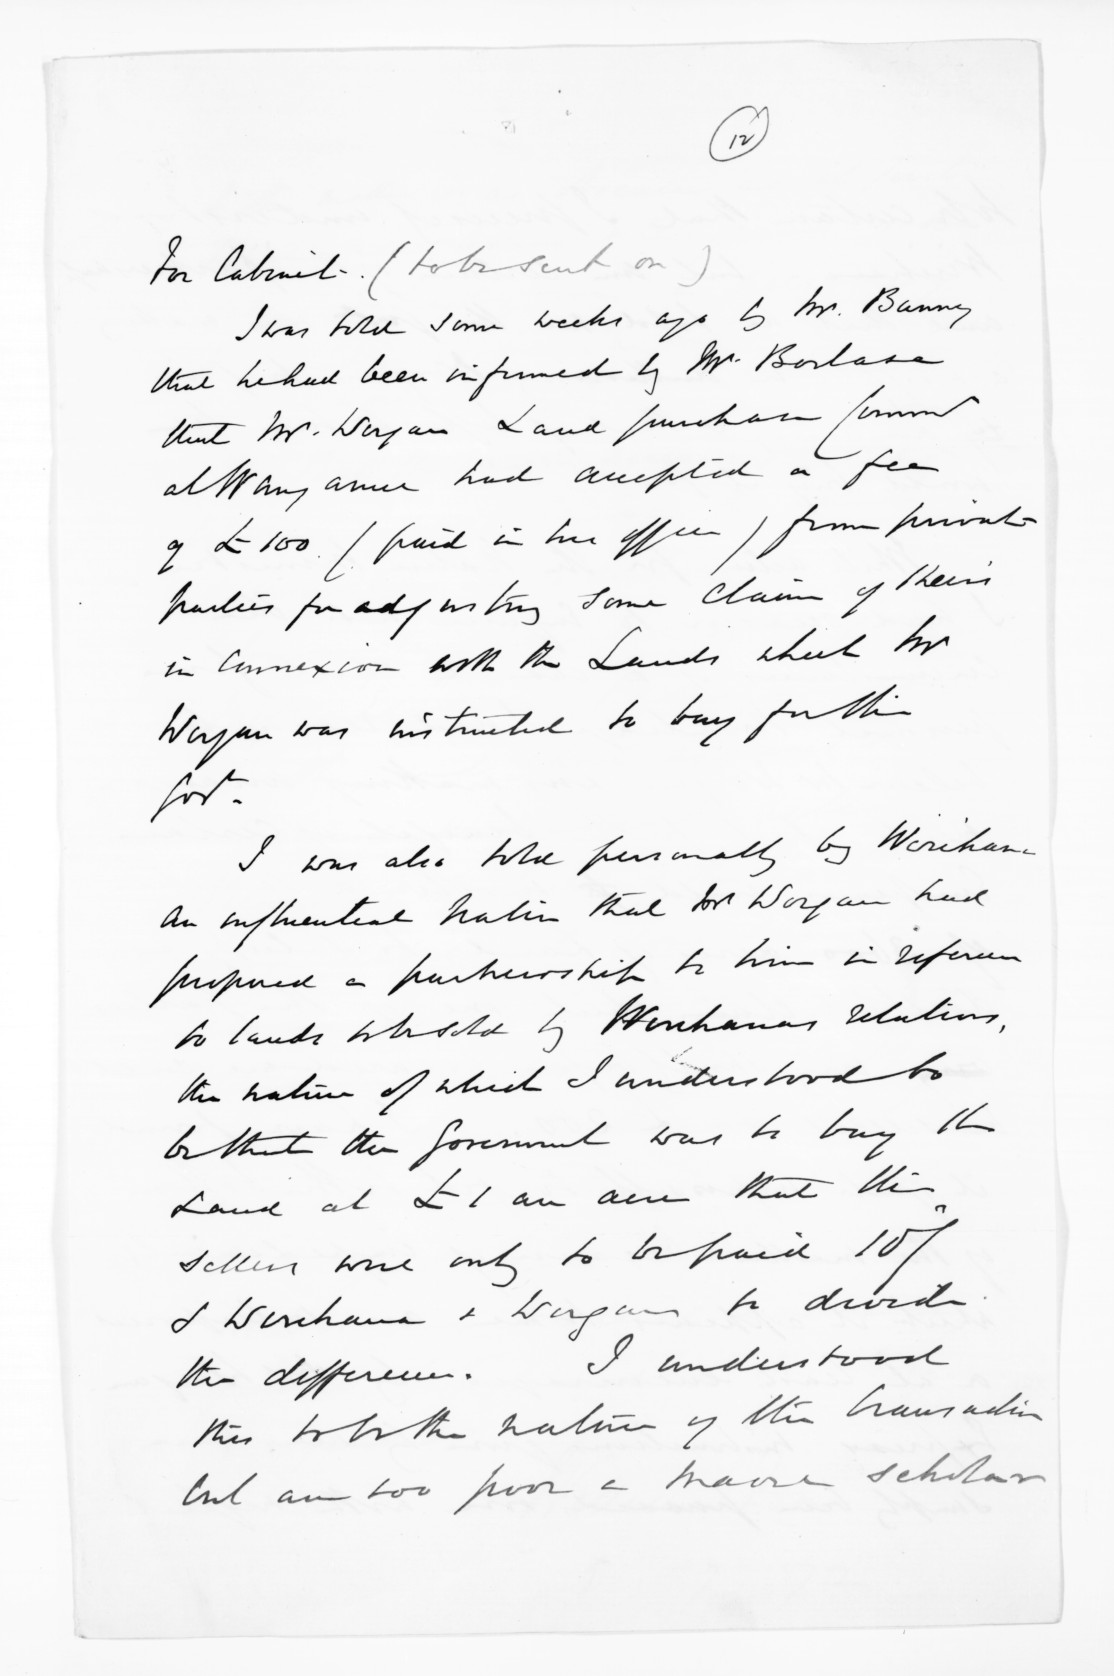 12
For Cabinet. (to be sent on)
I was told some weeks ago by Mr. Bunny
that he had been informed by Mr. Borlase
that Mr. Worgan Land purchase Commr
at Wanganui had accepted a fee
of £100. (paid in his office) from private
parties for adjusting some claim of theirs
in connexion with the Lands which Mr
Worgan was instructed to buy for the
Govt.
I was also told personally by Wirihana
an influential Native that Mr Worgan had
proposed a partnership to him in reference
to lands to be sold by Wirihanas relations,
the nature of which I understood to
be that the Government was to buy the
Land at £1 an acre that the
sellers were only to be paid 10/
& Wirihana & Worgan to divide
the difference. I understood
this to be the nature of the transaction
but am too poor a Maori scholar